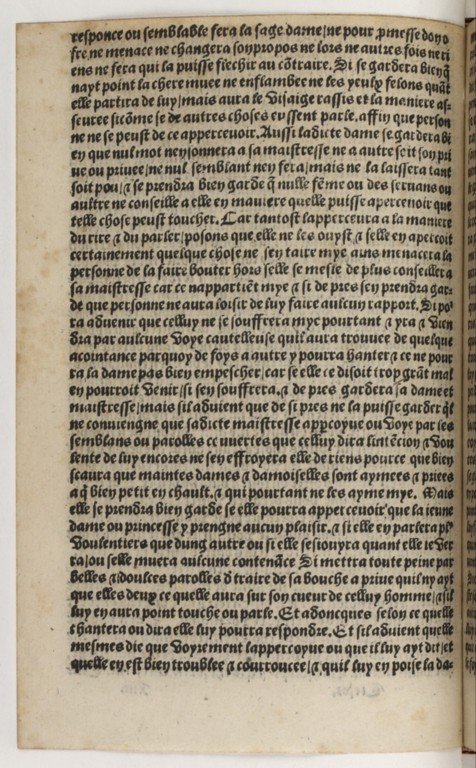 responce ou semblable fera la sage dame/ne pour ꝓmesse don o
fre ne menace ne changera son propos ne lors ne autres fois ne ri
ens ne fera qui la puisse flechir au cõtraire. Si se gardera bien q̃
nayt point la chere muee ne enflambee ne les yeulx felons quãt
elle partira de luy/mais aura le visaige rassis et la maniere as
seuree sicõme se de autres choses eussent parle. affin que person
ne ne se peust de ce appercevoir. Aussi ladicte dame se gardera bi
en que nul mot nen sonnera a sa maistresse ne a autre soit son pri
ue ou priuee/ne nul semblant nen fera/mais ne la laissera tant
soit pou/⁊ se prendra bien garde q̃ nulle fẽme ou des seruans ou
aultre ne conseille a elle en maniere quelle puisse apercenoir que
telle chose peust toucher. Car tantost lapperceura a la maniere
du rire ⁊ du parler/posons que elle ne les ouyst ⁊ selle en apercoit
certainement quelque chose ne sen taire mye ains menacera la
personne de la faire bouter hors selle se mesle de plus conseiller a
sa maistresse car ce nappartiẽt mye ⁊ si de pres sen prendra gar
de que personne ne aura loisir de luy faire aulcun rapport. Si po²
ra aduenir que celluy ne se souffrera mye pourtant ⁊ yra ⁊ vien
dra par aulcune voye cautelleuse quil aura trouuee de quelque
acointance parquoy de foys a autre y pourra hanter ⁊ ce ne pour
ra la dame pas bien empescher/car se elle ce disoit trop grãt mal
en pourroit venir/si sen souffrera. ⁊ de pres gardera sa dame et
maistresse/mais sil aduient que de si pres ne la puisse garder q̃l
ne conuiengne que sadicte maistresse appcoyue ou voye par ses
semblans ou parolles couuertes que celluy dira lintẽcion ⁊ vou
lente de luy encores ne sen effroyera elle de riens pource que bien
scaura que maintes dames ⁊ damoiselles sont aymees ⁊ priees
a q̃ bien petit en chault. ⁊ qui pourtant ne les ayme mye. Mais
elle se prendra bien garde se elle pourra appercevoir que la ieune
dame ou princesse y prengne aucun plaisir. ⁊ si elle en parlera pl⁹
voulentiers que dung autre ou si elle sesiouyra quant elle le ver
ra/ou selle muera aulcune contenãce Si mettra toute peine par
belles ⁊ doulces parolles d traire de sa bouche a priue quil ny ayt
que elles deux ce quelle aura sur son cueur de celluy homme/⁊ sil
luy en aura point touche ou parle. Et adoncques selon ce quelle
chantera ou dira elle luy pourra respondre. Et sil aduient quelle
mesmes die que voyrement lappercoyue ou que il luy ayt dit/et
quelle en est bien troublee ⁊ courroucee/⁊ quil luy en poise la da-